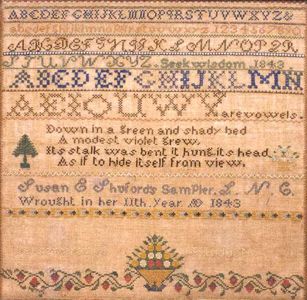 ABCDEFGHIJKLMNOPQRSTUVWXYZ&
ABCDEFGHIJKLMNOPQR
STUVWXYZ. Seek wisdom. 1843
ABCDEFGHIJKLMN
AEIOUWY are vowels.
Down in a green and shady bed
A modest violet grew.
Its stalk was bent it hung its head
As if to hide itself from view.
Susan E Shufords Sampler. L. N. C.
Wrought in her 11th. Year AD 1843